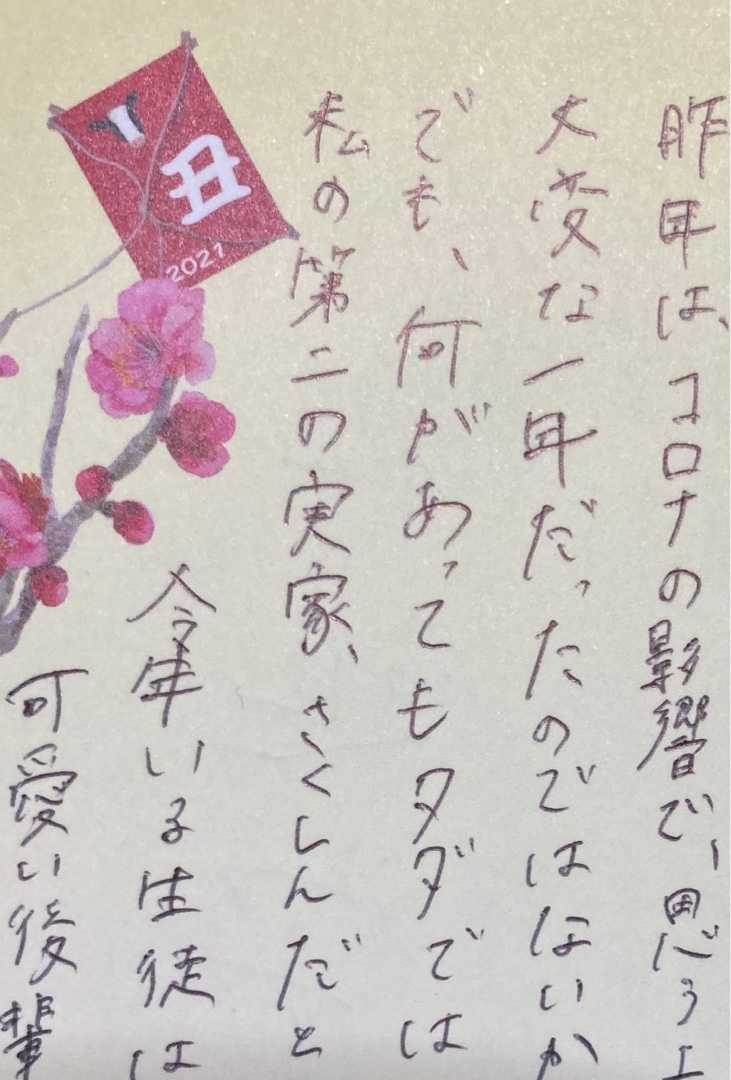 昨年は、コロナの影響で、思うよ
大変な一年だったのではないか
でも、何があってもタダでは
私の第二の実家、さくしんだと
今年いる生徒は
可愛い後輩
丑
2021